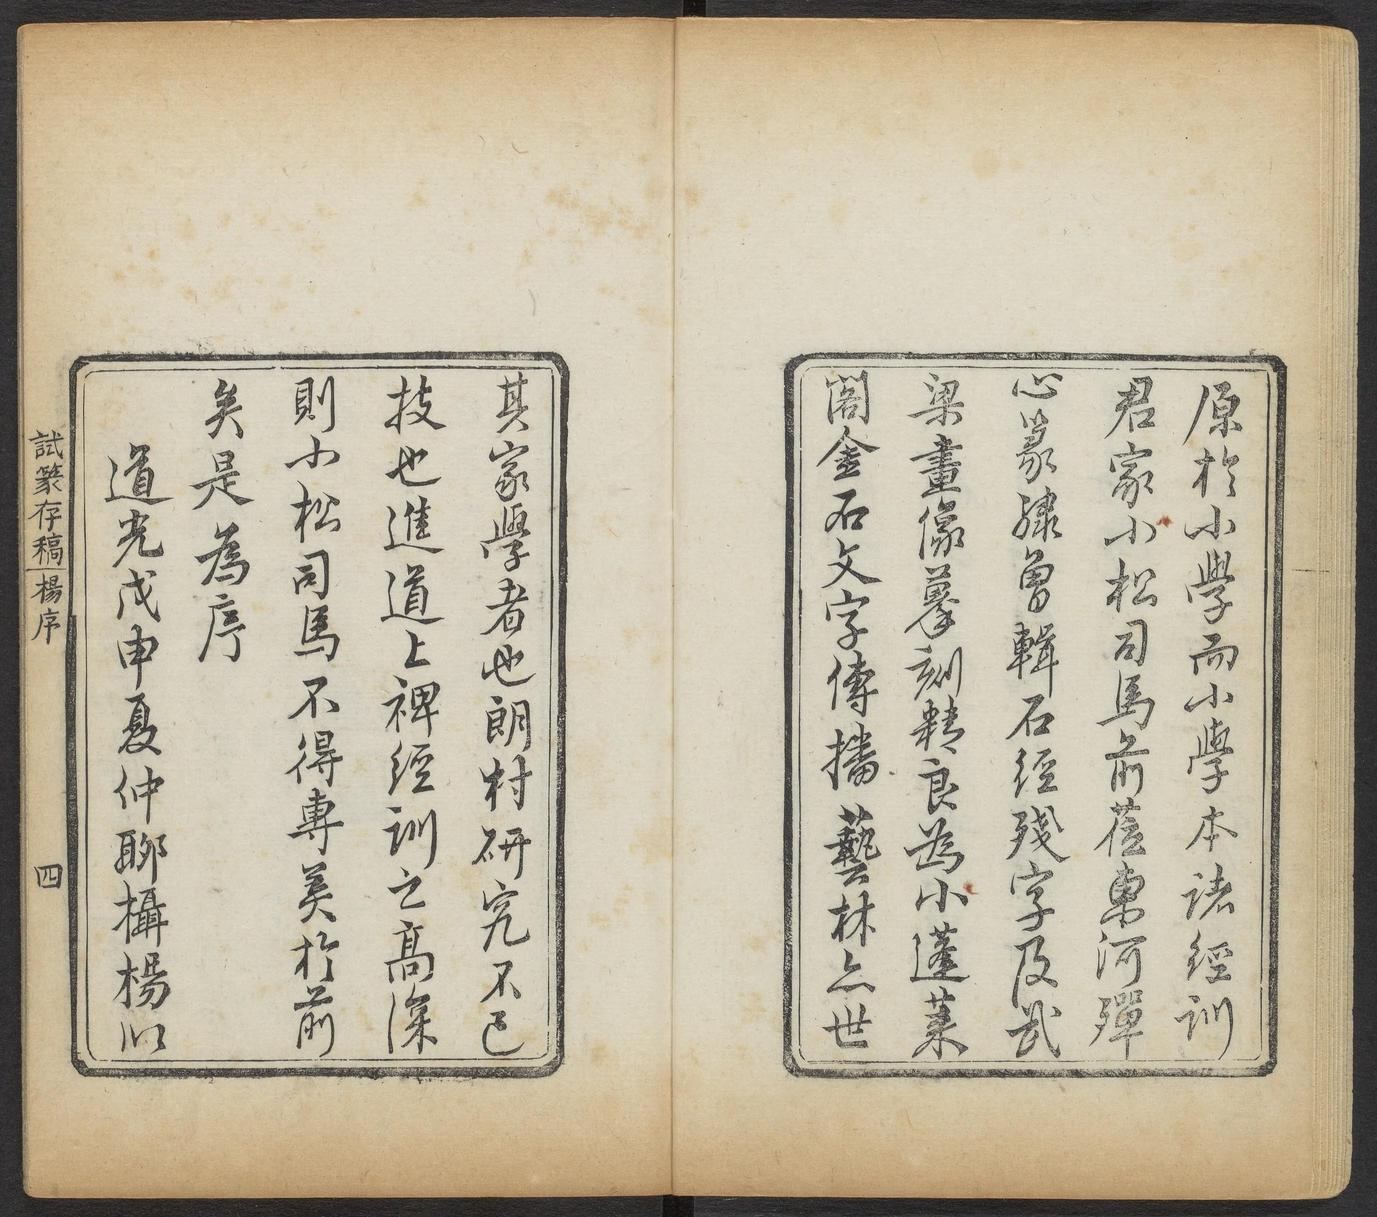 原於小學而小學本諸經訓
君家小松司馬前莅東河殫
心篆隸曾輯石經殘字及武
梁畫像摹刻精良為小蓬萊
閣金石文字傳播藝林亦世
其家學者也朗村研究不已
技也進道上裨經訓之高深
則小松司馬不得專美於前
矣是為序
道光戊申夏仲聊攝楊以
試篆存稿 楊序
四